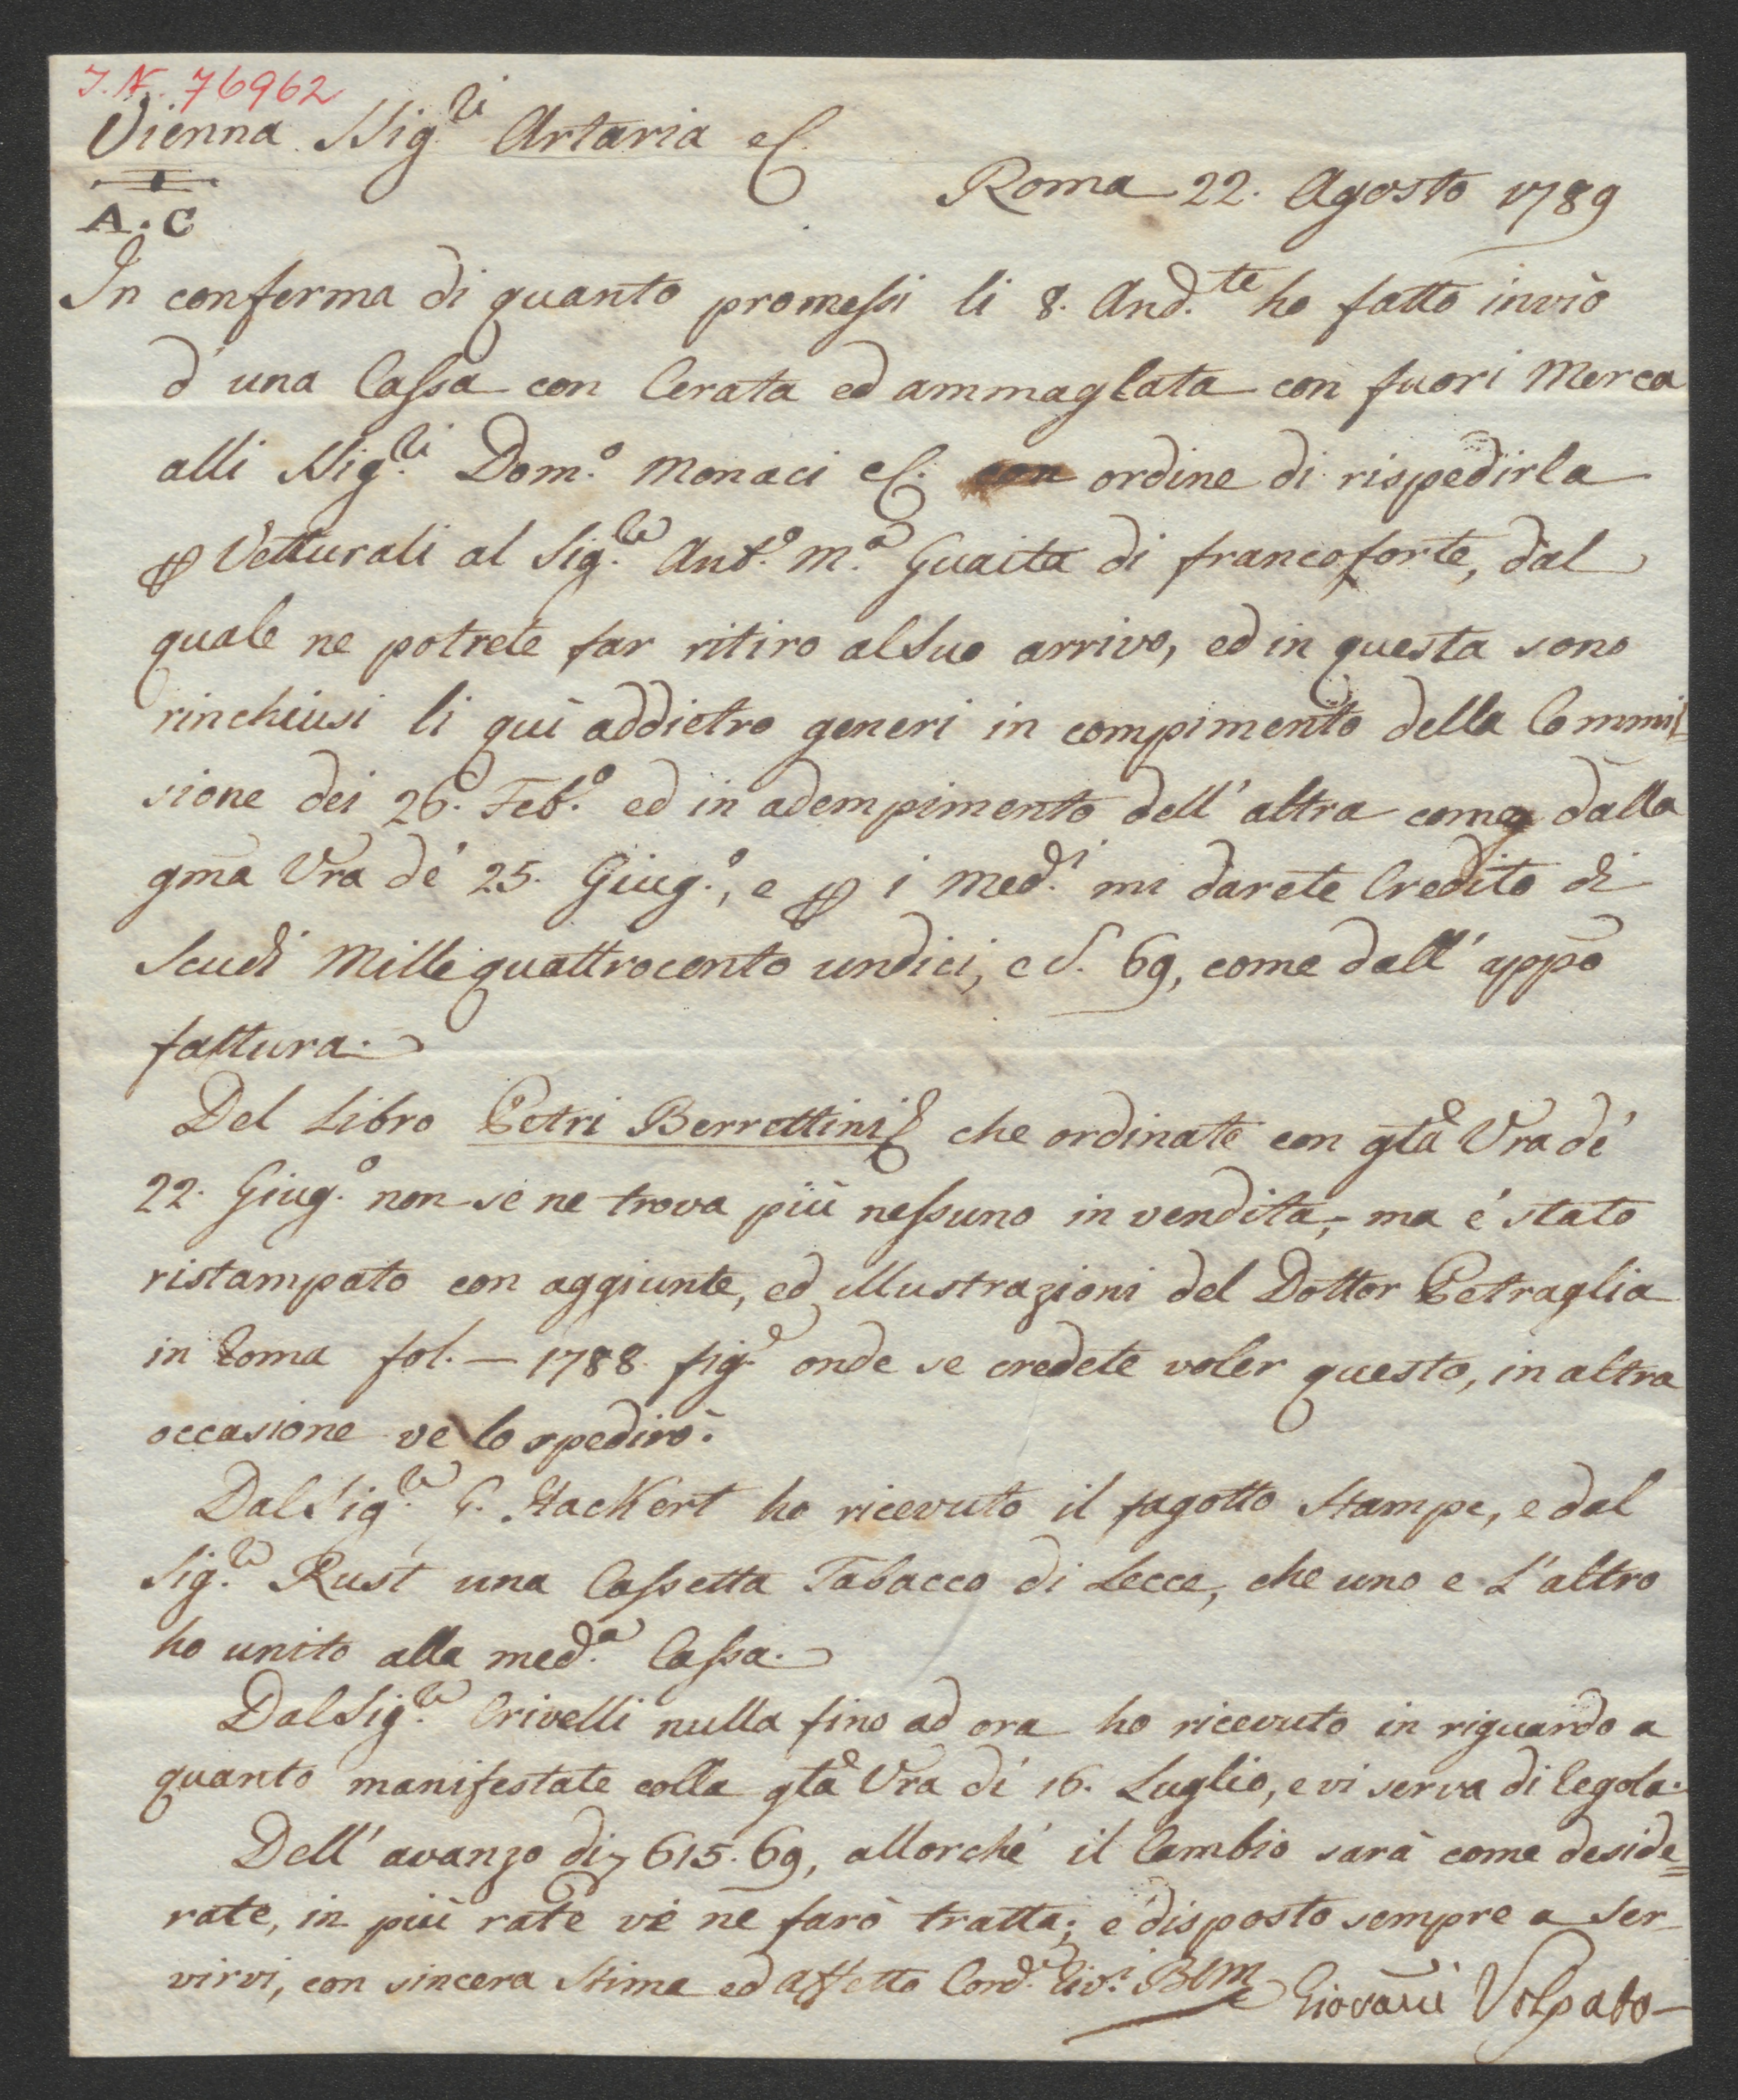 I. N. 76962
Vienna. Sig.ri Artaria e C.
Roma 22. Agosto 1789
A. C
In conferma di quanto promessi li 8. And.te ho fatto inviò
d'una Cassa con Cerata ed ammaglata con fuori Merca
alli Sig.ri Dom.o Monaci e C. con ordine di rispedirla
p Vetturali al Sig.re Ant.o M.a Guaita di francoforte, dal
quale ne potrete far ritiro al Suo arrivo, ed in questa sono
rinchiusi li quì addietro generi in compimento della Commis-
sione dei 26. Feb.o ed in adempimento dell'altra come dalla
gma Vra dè 25. Giug.o, e p i Med.i mi darete Credito di
Scudi Mille quattrocento undici, e S. 69, come dall'appo
fattura.
Del Libro Petri Berrettini che ordinate con gta Vra dè
22. Giug.o non se ne trova più nessuno in vendita, ma è stato
ristampato con aggiunte, ed illustrazioni del Dottor Petraglia
in Roma fol. — 1788. fig.o onde se credete voler questo, in altra
occasione ve lo spedirò.
Dal Sig.re G. Hackert ho ricevuto il fagotto Stampe, e dal
Sig.re Rust una Cassetta Tabacco di Lecce, che uno e L'altro
ho unito alla med.a Cassa.
Dal Sig.re Crivelli nulla fino ad ora ho ricevuto in riguardo a
quanto manifestate colla gta Vra di 16. Luglio, e vi serva di Regola.
Dell'avanzo di 615. 69, allorchè il Cambio sarà come deside=
rate, in più rate ve ne farò tratta; e disposto sempre a Ser
virvi, con sincera Stima ed affetto Cord.e Riv.i BLM Giovani Volpato